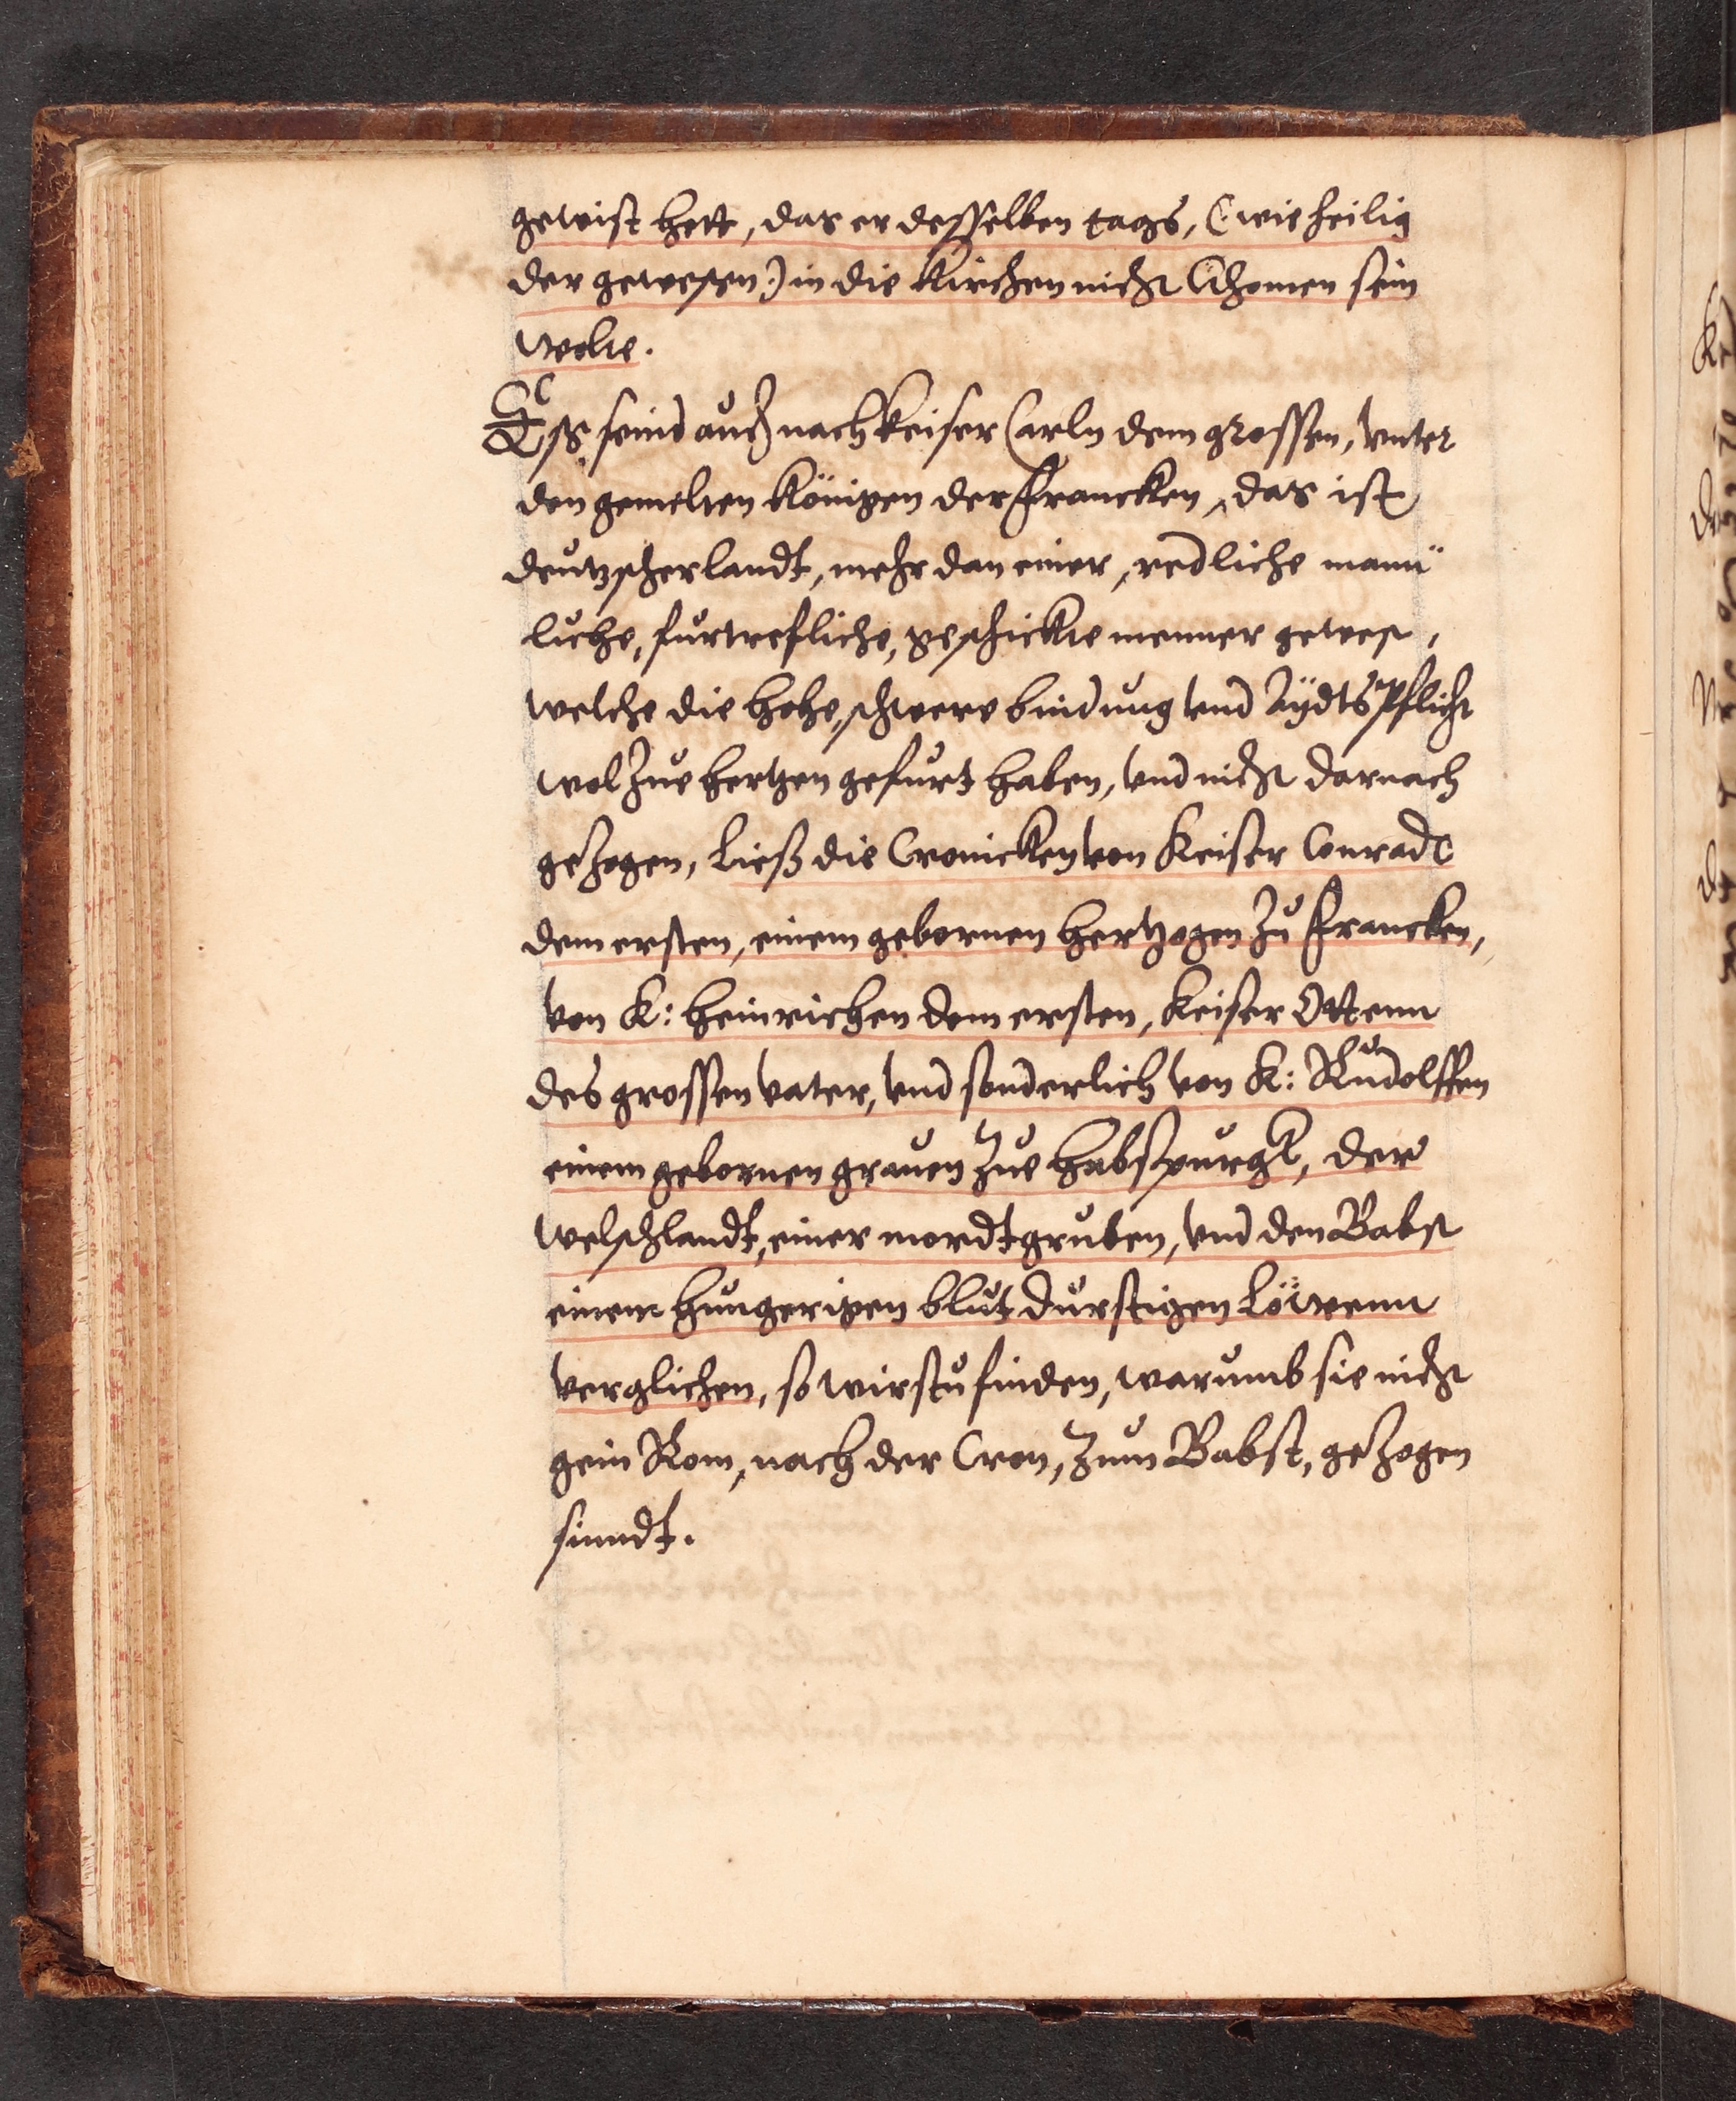 gewist hett, das er desselben tags, (: wie heilig
der gewesen:) in die Kirchen nicht khomen sein
wolte.
Ess seind auch nach keiser Carln dem grossen, vnter
den gemelten Königen der Francken, das ist
deutzscherlandt, mehr dan einer, redliche mann
liche, furtrefliche, geschickte menner gewest,
welche die hohe, schwere bindung vnd Aÿdts Pflicht
wol zue hertzen gefurt haben, vnd nicht darnach
gezogen, Ließ die Cronicken von Keiser Conradt
dem ersten, einem gebornen hertzogen zu Francken,
von K: heinrichen dem ersten, Keiser Ottenn
des grossen vater, vnd sonderlich von K: Rudolffen
einem gebornen grauen zue habspurgk, der
welschlandt, einer mordtgruben, vnd den Babst
einem hungerigen blut durstigen Löwenn
verglichen, so wirstu finden, warumb sie nicht
gein Rom, nach der Cron, zum Babst, gezogen
sinndt.